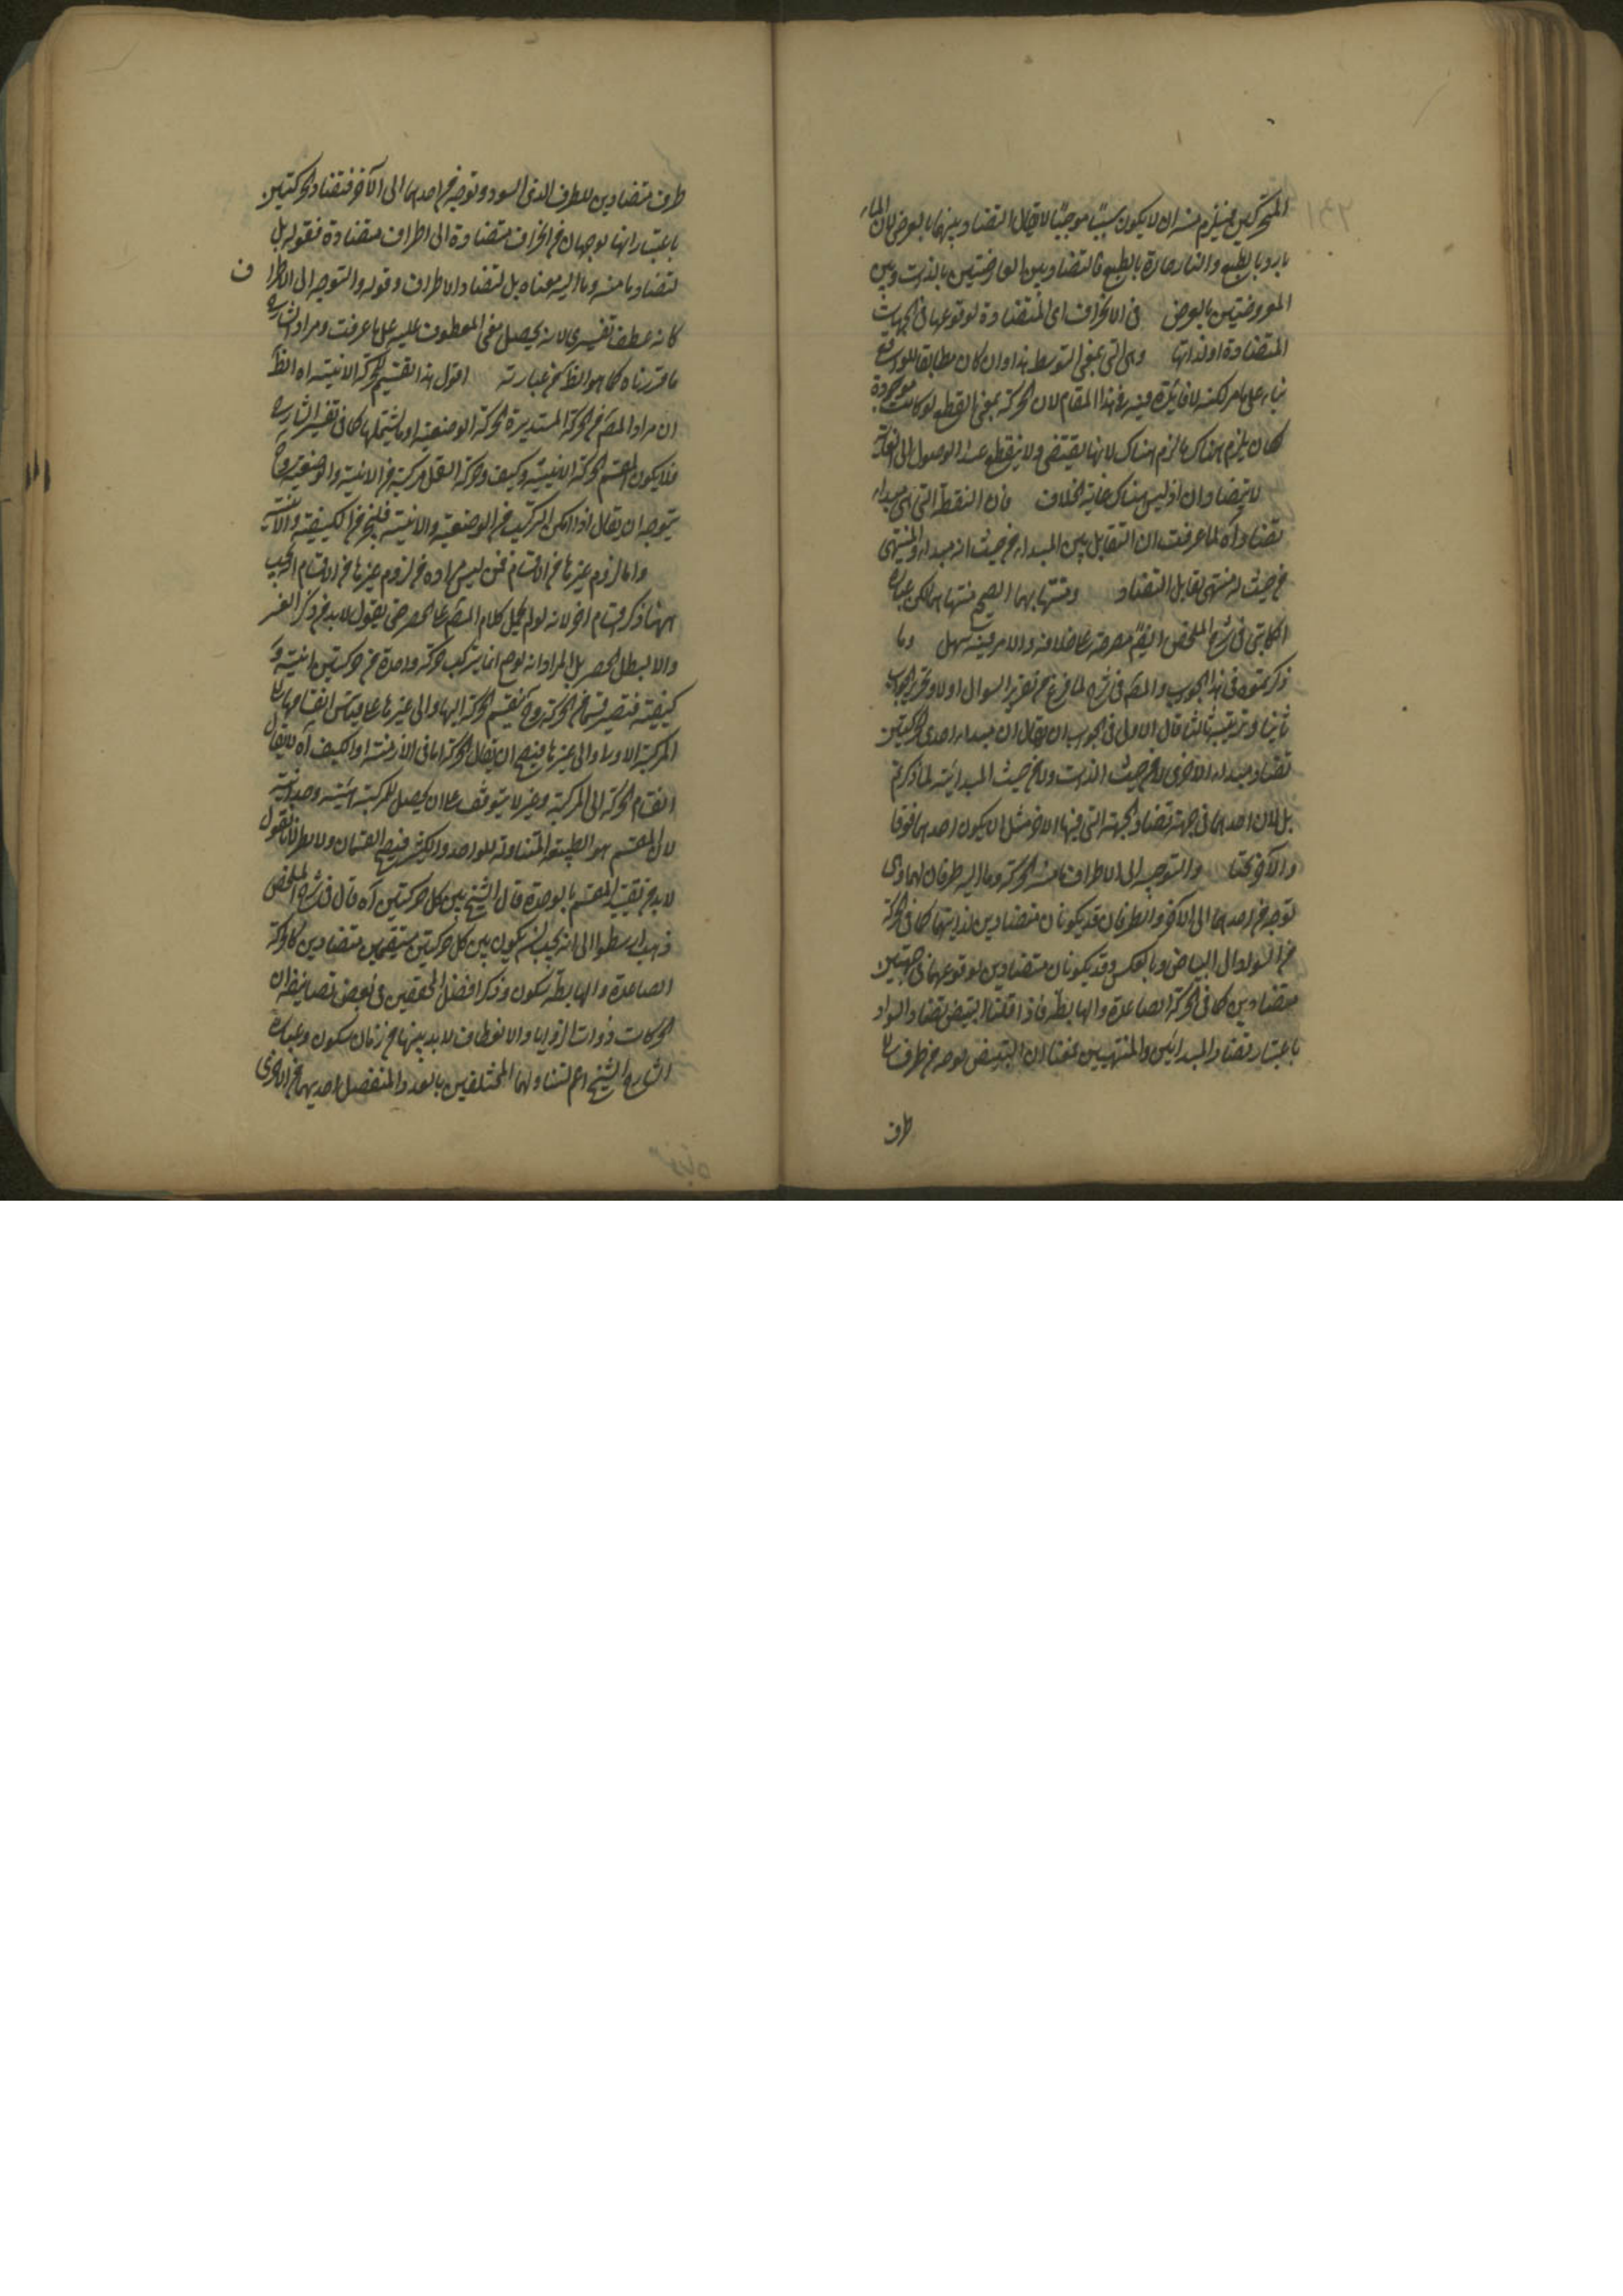 المتحركين فيلزم منه ان لا يكون سببا موجبا لا يقال التضاد بينهما بالعرض لان الماء
بارد بالطبع والنار حارة بالطبع فالتضاد بين العارضتين بالذات وبين
المعروضتين بالعرض في الانحراف اى المتضادة لوقوعها في الجهات
المتضادة او لذاتها وهى التى بمعنى التوسط هذا وان كان مطابقا للواقع
بناء على ما مر لكنه لا فائدة فيه في هذا المقام لان الحركة بمعنى القطع لو كانت موجودة
لكان يلزم هناك ما لزم هناك لانها يقتضى ولا ينقطع عند الوصول الى
لا يتضادان اذ ليس هناك غاية الخلاف فان النقطة التى هى مبداء
تضاد اه لما عرفت ان التقابل بين المبداء من حيث انه مبداء والمنتهى
من حيث انه منتهى تقابل التضاد ومنتهاهما الصحيح منتهاهما لكن عبارة
الكاتبى في شرح الملخص ايضا مصرحة على خلافه والامر فيه سهل وما
ذكرتموه في هذا الجواب والمصـ في شرحه لما فرغ من تقرير السوال اولا وتحرير الجواب
ثانيا وتزييفه ثالثا قال الاولى في الجواب ان يقال ان مبداء احدى الحركتين
تضاد مبداء الاخرى لا من حيث الذات ولا من حيث المبدائية لما ذكرتم
بل لان احدهما في جهة تضاد الجهة التى فيها الاخر مثل ان يكون احدهما فوقا
والآخر تحتا والتوجه الى الاطراف ما منه الحركة وما اليه طرفان لها وهى
توجه من احدهما الى الآخر والطرفان قد يكونان متضادين لذاتيهما كما في الحركة
من السواد الى البياض وبالعكس وقد يكونان متضادين لوقوعهما في جهتين
متضادين كما في الحركة الصاعدة والهابطة فاذا قلنا التبيض تضاد السواد
باعتبار تضاد المبدائين والمنتهيين عنينا ان التبيض توجه من طرف
طرف
طرف متضادين للطرف الذى السود وتوجه من احدهما الى الآخر فتضاد الحركتين
باعتبار انها توجهان من اطراف متضادة الى اطراف متضادة فقوله بل
لتضاد ما منه وما اليه معناه بل لتضاد الاطراف وقوله والتوجه الى الاطراف
كانه عطف تفسيرى لانه يحصل معنى المعطوف عليه على ما عرفت ومراد الشارح
ما قررناه كما هو الظ من عبارته اقول هذا تقسيم للحركة الاينية اه الظ
ان مراد المصـ من الحركة المستديرة الحركة الوضعية او ما يشتملها كما في تفسير الشارح
فلا يكون المقسم الحركة الاينية وكيف وحركة الثقل مركبة من الاينية والوضعية وح
يتوجه ان يقال اذا امكن التركيب من الوضعية والاينية فليجز من الكيفية والاينية
واما لزوم غيرها من الاقسام فمن ليس مراده من لزوم غيرها من الاقسام انه يجب
ههنا ذكر اقسام اخر لانه لو لم يحمل كلام المصـ على الحصر حتى يقول لابد من ذكر الغير
والا لبطل الحصر بل المراد انه لو صح انما يتركب حركة واحدة من حركتين اينية و
كيفية فتصير قسما من الحركة وح تنقسم الحركة اليها والى غيرها على قياس انقسامها الى
المركبة الاولى والى غيرها فيصح ان يقال الحركة اما في الاين او الكيف اه لا يقال
انقسام الحركة الى المركبة وغيره لا يتوقف على ان يحصل للمركبة هيئة وحدانية
لان المقسم هو الطبيعة المتناولة للواحد والكثير فيصح القسمان ولا بطلان لانا نقول
لابد من تقييد المقسم بالوحدة قال الشيخ بين كل حركتين اه قال في شرح الملخص
ذهب ارسطو الى انه يجب ان يكون بين كل حركتين مستقيمتين متضادين كالحركة
الصاعدة والهابطة سكون وذكر افضل المحققين في بعض تصانيفه ان
الحركات ذوات الزوايا والانعطاف لابد بينها من زمان سكون وعبارة
الشارح الشيخ اعم لتناولهما المختلفين بالعدد المنفصل احديهما من الاخرى